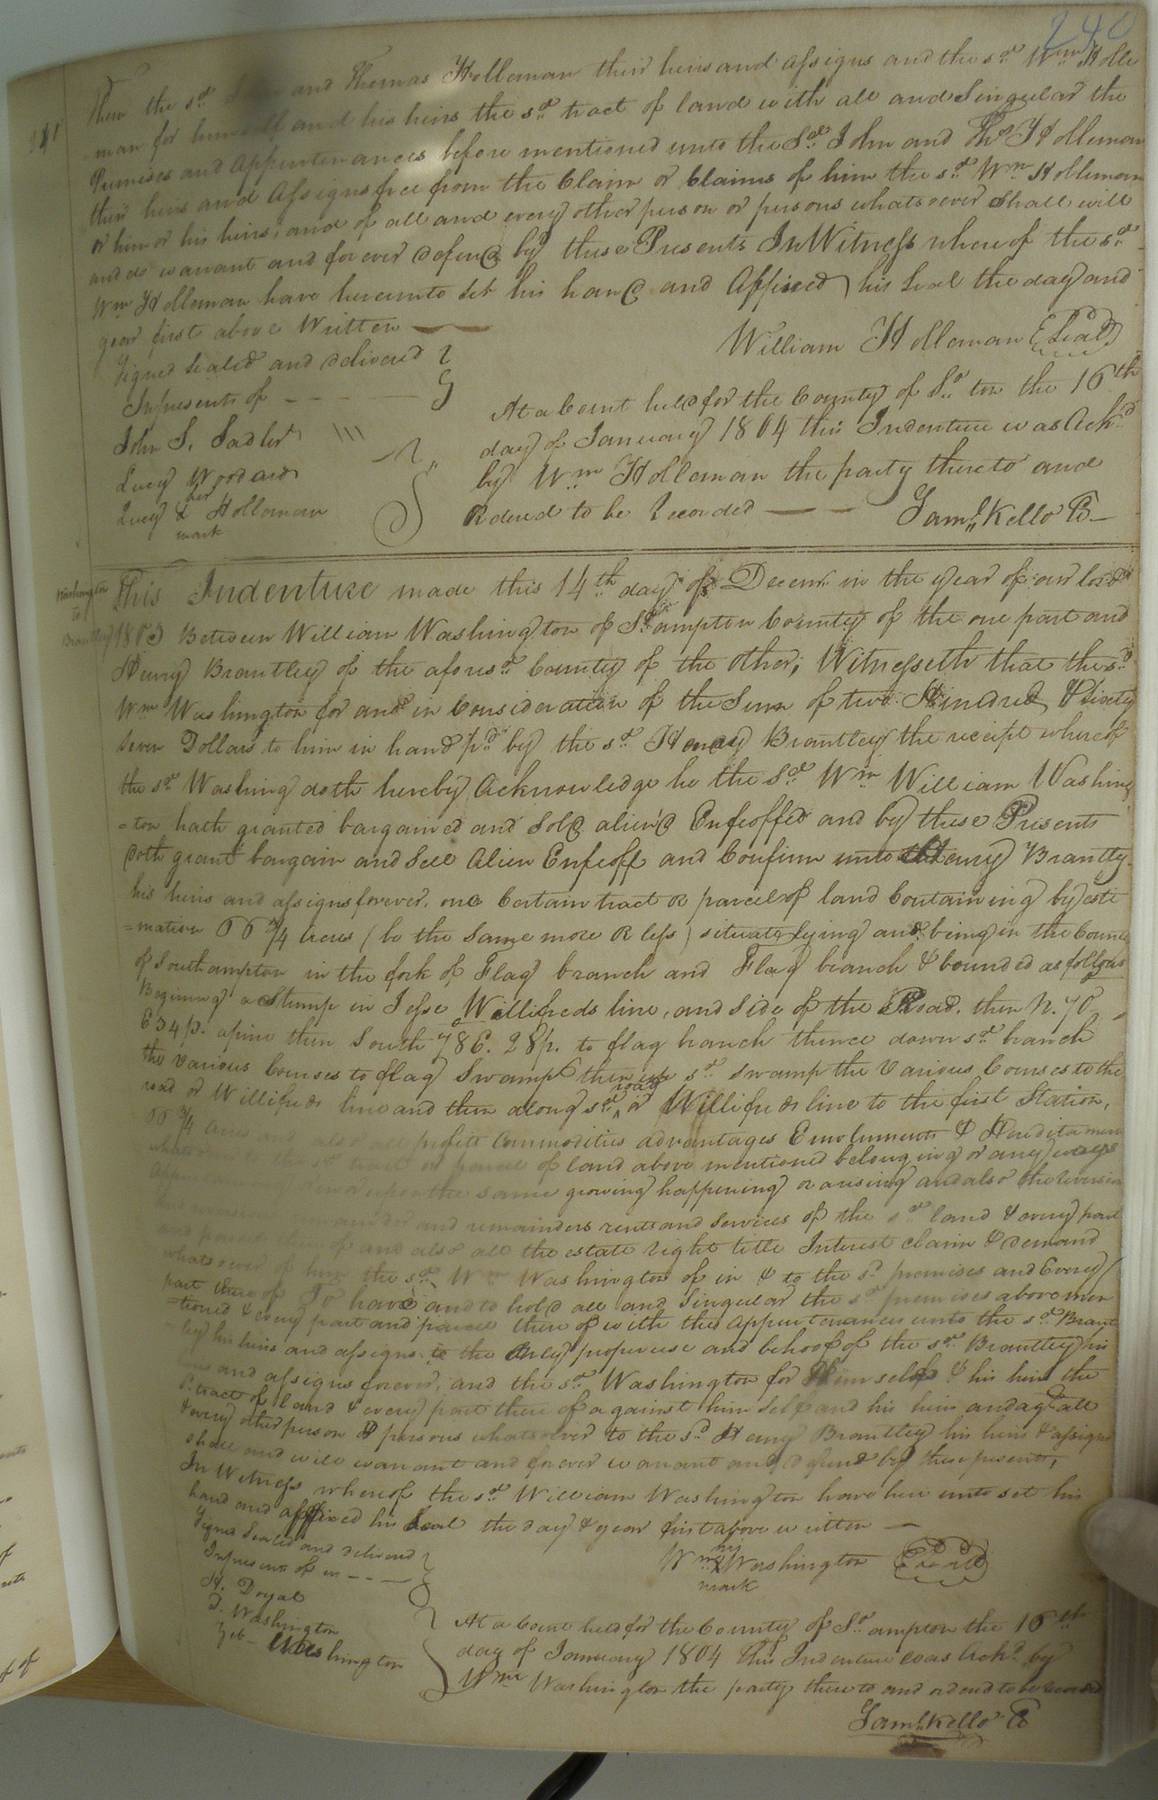 240
Them the sd. John and Thomas Holleman their heirs and assigns and the sd. Wm Holle
man for himself and his heirs the sd. tract of land with all and Singular the
Premises and Appurtenances before mentioned unto the Sd. John and Thos. Holleman
their heirs and Assigns free from the Claim or Claims of him the sd. Wm Holleman
or him or his heirs, and of all and every other person or persons whatsoever Shall will
and do warrant and for ever defend by these Presents In Witness whereof the sd.
Wm Holleman have hereunto Set his hand and Affixed his Seal the day and
year first above Written
William Holleman (Seal)
Signed Sealed and delivered
In presents of
John S. Sadler
Lucy Woodard
her
Lucy X Holleman
mark
At a Court held for the County of So. ton the 16th
day of January 1804 this Indenture was Ackd.
by Wm Holleman the party thereto and
Ordered to be Recorded
Saml. Kello C
Washington
to
Brantley
This Indenture made this 14th day of Decemr. in the year of our lord
1803 Between William Washington of So.ampton County of the one part and
Henry Brantley of the aforesd. County of the other, Witnesseth that the sd.
Wm Washington for and in Consideration of the Sum of two Hundred & sixty
Seven Dollars to him in hand pd. by the sd. Henry Brantley the receipt whereof
the sd. Washing doth hereby Acknowledge he the Sd. Wm William Washing
=ton hath granted bargained and Sold alien'd Enfeoffed and by these Presents
doth grant bargain and Sell Alien Enfeoff and Confirm unto Henry Brantly
his heirs and assigns forever. one Certain tract or parcel of land Containing by esti
=mation 66 3/4 acres (be the Same more or less) situate lying and being in the County
of Southampton in the fork of Flag branch and Flag branch & bounded as follows
Begining a Stump in Jesse Willifreds line, and Side of the Road. then N. 70
E 34 p. apine then South 78 E. 28 p. to flag branch thence down sd. branch
the various Courses to flag Swamp then up sd. swamp the Various Courses to the
road or Willifreds line and then along sd. road or Willifreds line to the first Station,
66 3/4 acres and also all profits Commodities advantages Emoluments & Heredita ments
whatsoever to the sd. tract or parcel of land above mentioned belonging or any ways
in or upon the same growing happening or arising and also the reversion
and reversions remainder and remainders rents and Services of the sd. land & every part
and parcel thereof and also all the estate right title Interest claim & demand
whatsoever of him the sd. Wm Washington of in & to the sd. premises and Every
part thereof To have and to hold all and Singular the sd. premises above men
=tioned & every part and parcel there of with the Appurtenances unto the sd. Brant
=ley his heirs and assigns to the Only proper use and behoof of the sd. Brantley his
heirs and assigns forever, and the sd. Washington for Himself & his heirs the
sd. tract of land & every part there of against him Self and his heirs and agt. all
& every other person or persons whatsoever to the sd. Henry Brantley his heirs & assigns
shall and will warrant and forever warrant and defend by these presents,
In Witness whereof the sd. William Washington have here unto set his
hand and affixed his Seal the day & year first above written
his
Wm X Washington (Seal)
mark
Signd Sealed and delivered
In presents of in
H. Doyal
D. Washington
Zeb Washington
At a Court held for the County of So.ampton the 16th
day of January 1804 this Indenture was Ackd. by
Wm Washington the party there to and ordered to be recorded
Saml. Kello C